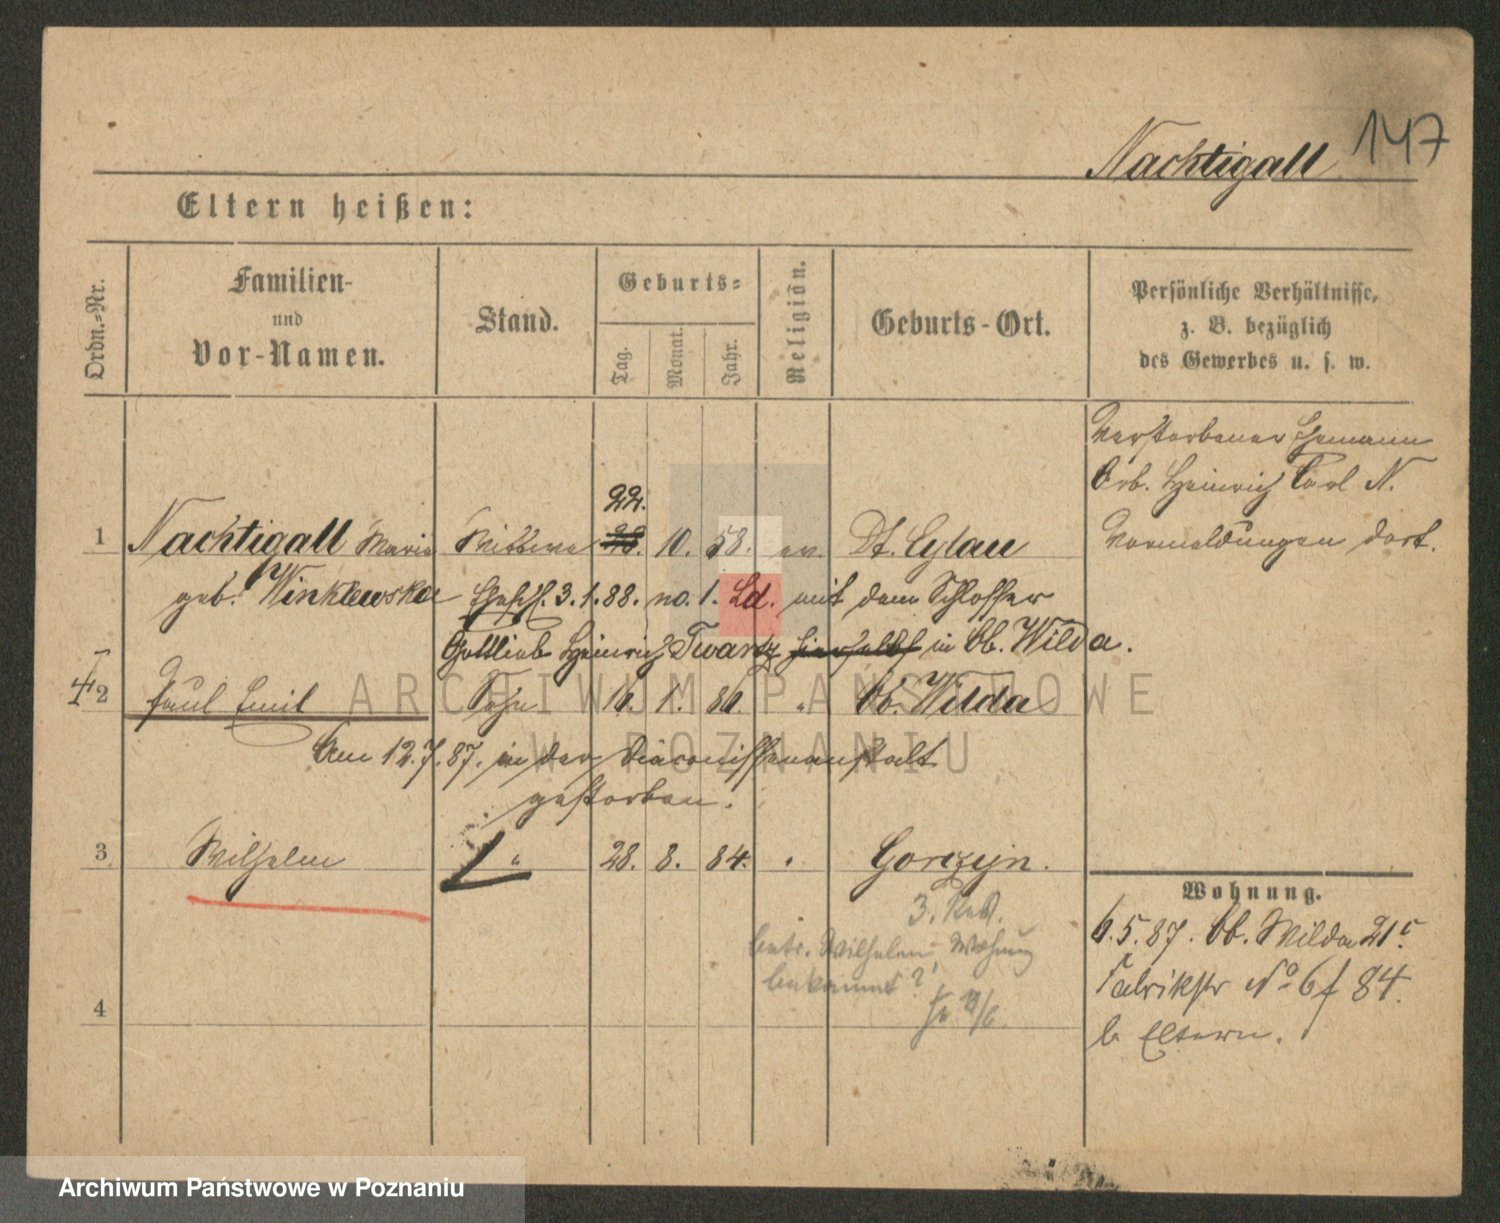 Nachtigall 147
Eltern heißen:
Ordn.-Nr.
Familien-
und
Vor-Namen.
Stand.
Geburts-
Tag. Monat. Jahr.
Religion.
Geburts-Ort.
Persönliche Verhältnisse,
z. B. bezüglich
des Gewerbes u. s. w.
Verstorbener Ehemann
Arb. Heinrich Carl N.
Vormeldungen dort.
22.
1 Nachtigall Maria Wittwe 28. 10. 58. ev. Dt. Eylau
geb. Winklewska Ehesch. 3.1.88. no. 1. Ld. mit dem Schlosser
Gottlieb Heinrich Twartz hierselbst in Ob. Wilda.
† 2 Paul Emil Sohn 16. 1. 86. " Ob. Wilda
Am 12.7.87. in der Diaconissenanstalt
gestorben.
3 Wilhelm " 28. 8. 84. " Gorczyn.
4
3. Rev.
betr. Wilhelm, Wohnung
bekannt?
19/6
Wohnung.
6.5.87. Ob. Wilda 21c.
Fabrikstr No 6 f 84.
b Eltern.
ARCHIWUM PAŃSTWOWE
W POZNANIU
Archiwum Państwowe w Poznaniu